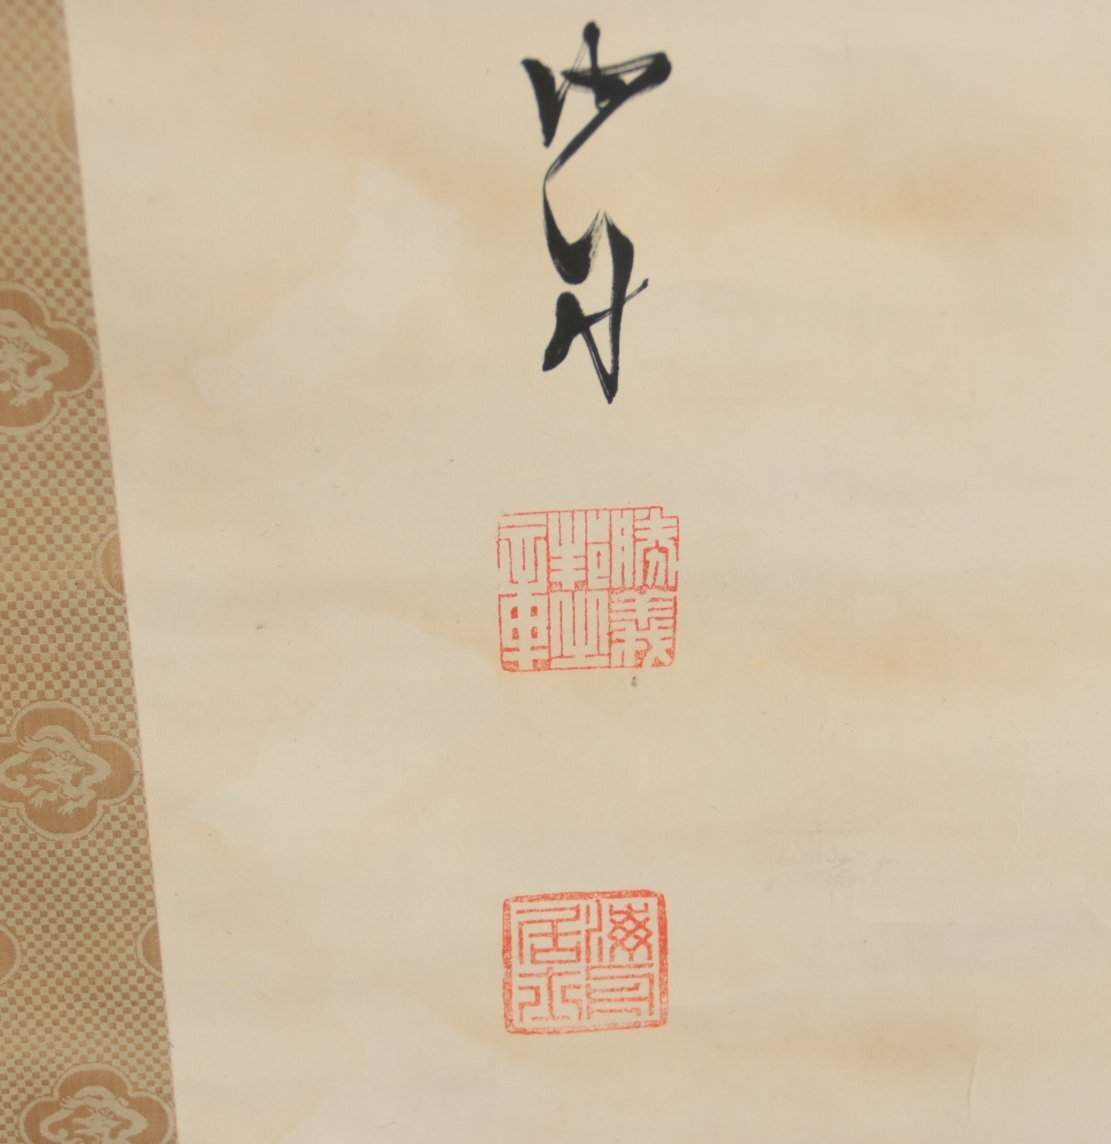 海舟
勝義邦之章
海舟居士